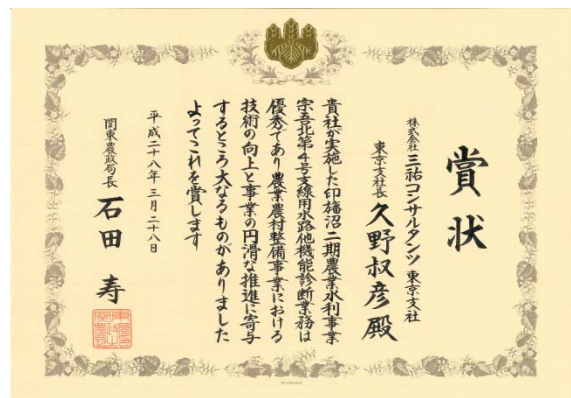 賞状
株式会社 三祐コンサルタンツ 東京支社
東京支社長 久野叔彦殿
貴社が実施した印旛沼二期農業水利事業
宗吾北第4号支線用水路他機能診断業務は
優秀であり農業農村整備事業における
技術の向上と事業の円滑な推進に寄与
するところ大なるものがありました
よってこれを賞します
平成二十八年三月二十八日
関東農政局長 石田寿